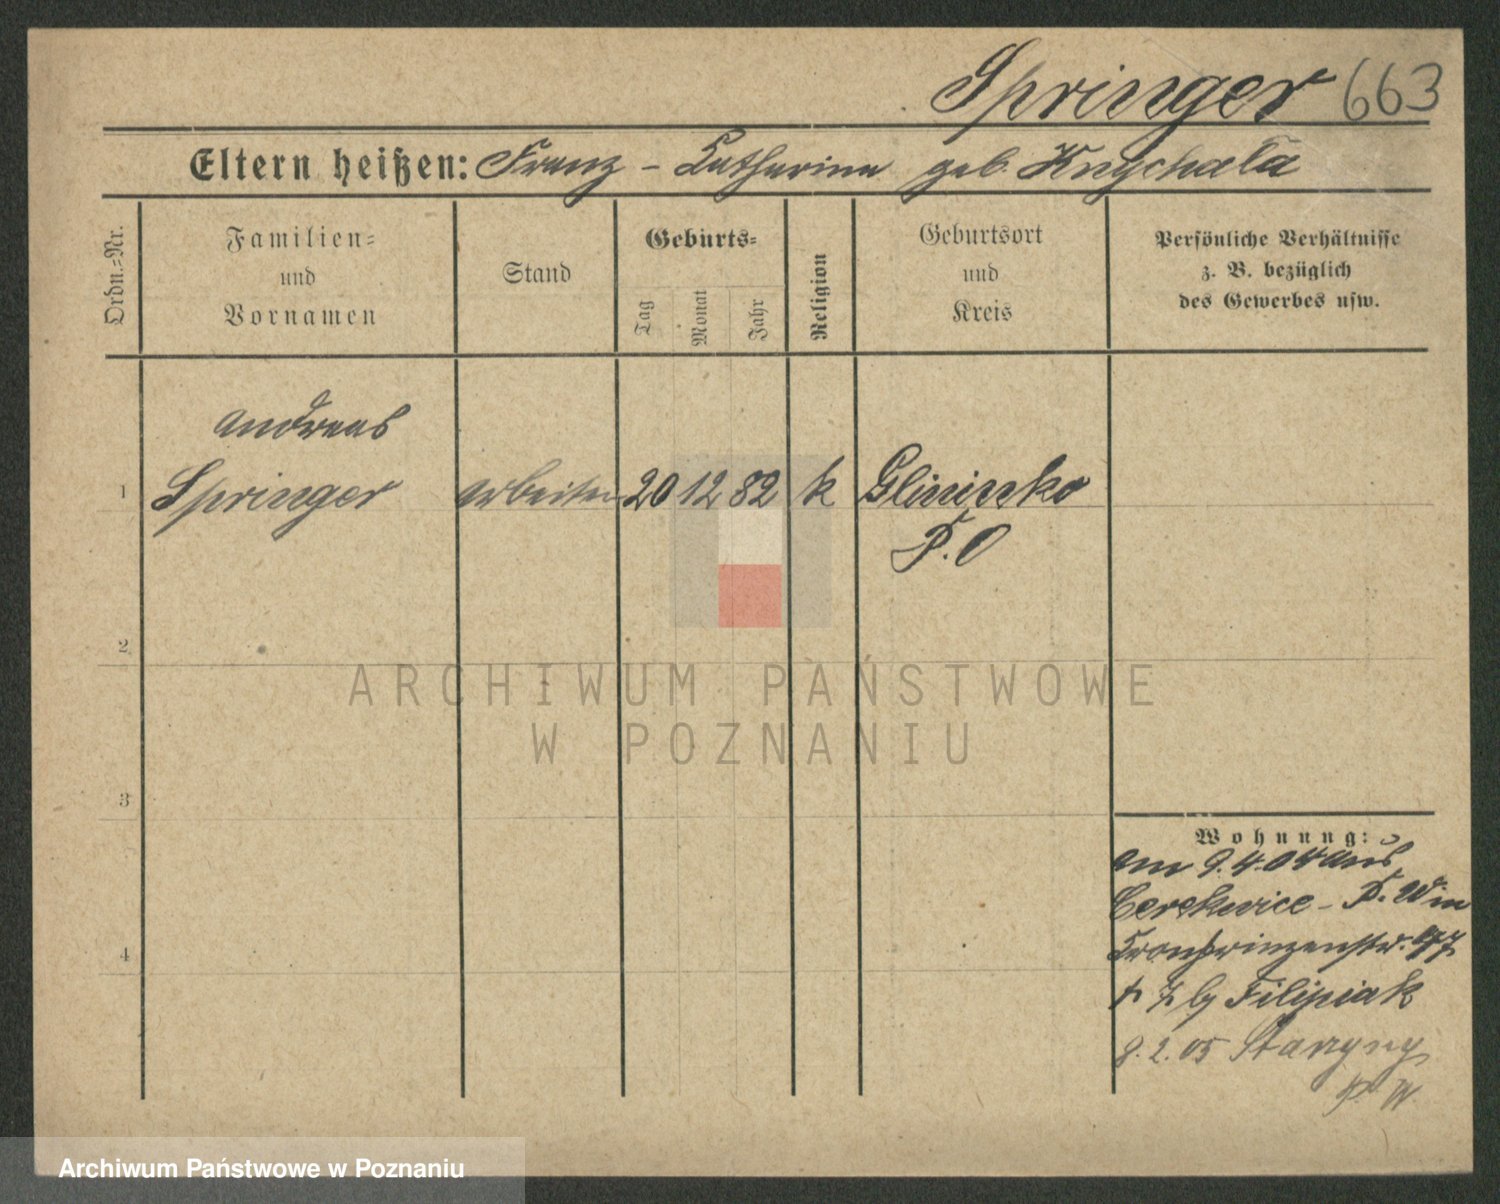 Springer 663
Eltern heißen: Franz – Katharina geb. Knychała
Ordn.=Nr.
Familien=
und
Vornamen
Stand
Geburts=
Tag
Monat
Jahr
Religion
Geburtsort
und
Kreis
Persönliche Verhältnisse
z. B. bezüglich
des Gewerbes usw.
Andreas
1 Springer Arbeiter 20 12 82 k Glinienko
P. O
2
3
4
Wohnung:
am 9.4.04 aus
Cerekwice – P. W
Kronprinzenstr. 97
Filipiak
8.2.05
P. W.
ARCHIWUM PAŃSTWOWE
W POZNANIU
Archiwum Państwowe w Poznaniu